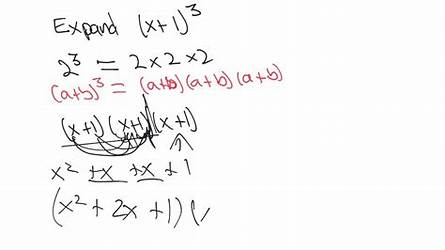 Expand (x+1)³
2³ = 2×2×2
(a+b)³ = (a+b)(a+b)(a+b)
(x+1)(x+1)(x+1)
x² +x +x +1
(x² + 2x +1)(